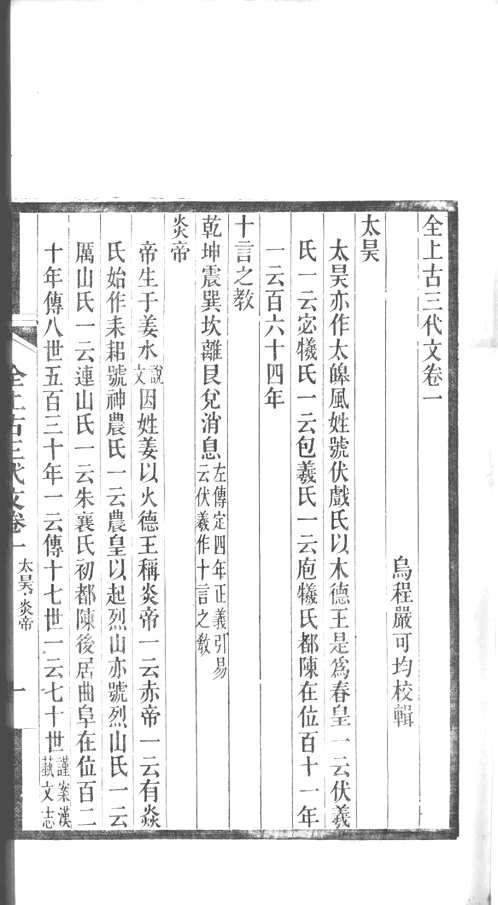 全上古三代文卷一
烏程嚴可均校輯
太昊
太昊亦作太皞風姓號伏戲氏以木德王是爲春皇一云伏羲
氏一云宓犧氏一云包羲氏一云庖犧氏都陳在位百十一年
一云百六十四年
十言之教
乾坤震巽坎離艮兌消息左傳定四年正義引易
云伏羲作十言之教
炎帝
帝生于姜水說文因姓姜以火德王稱炎帝一云赤帝一云有焱
氏始作耒耜號神農氏一云農皇以起烈山亦號烈山氏一云
厲山氏一云連山氏一云朱襄氏初都陳後居曲阜在位百二
十年傳八世五百三十年一云傳十七世一云七十世謹案漢
蓺文志
全上古三代文卷一 太昊 炎帝 一